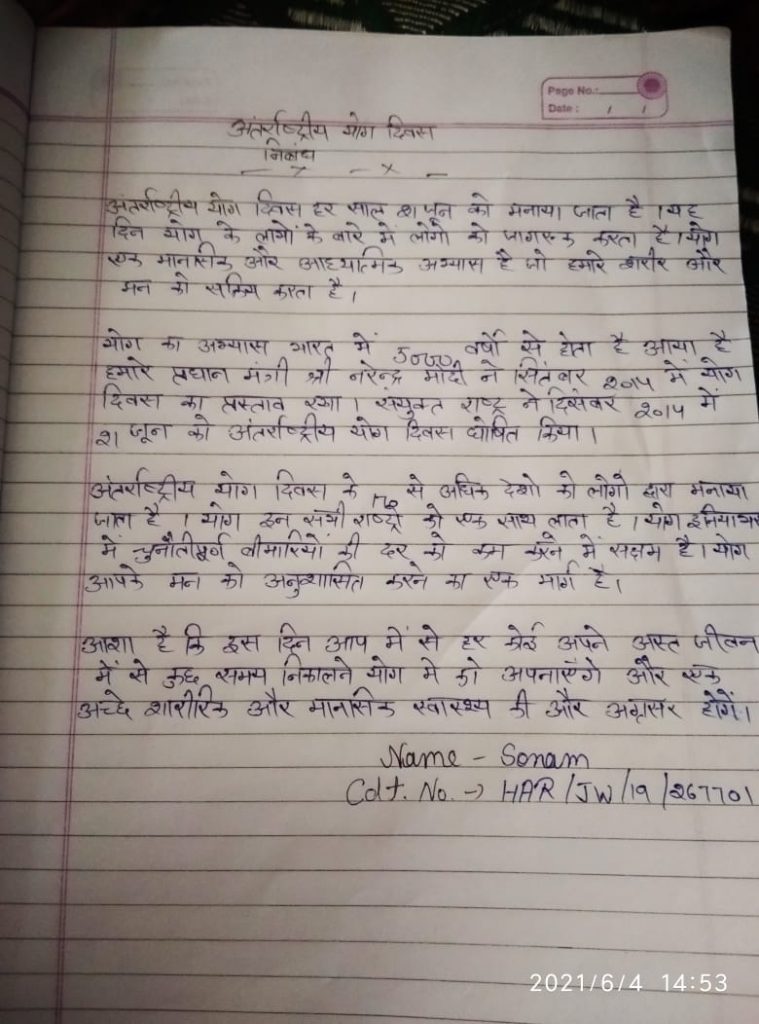 Page No.:
Date : / /
अंतर्राष्ट्रीय योग दिवस
निबंध
— x — x —
अंतर्राष्ट्रीय योग दिवस हर साल 21 जून को मनाया जाता है । यह
दिन योग के लाभों के बारे में लोगों को जागरुक करता है । योग
एक मानसिक और आध्यात्मिक अभ्यास है जो हमारे शरीर और
मन को सक्रिय करता है ।
योग का अभ्यास भारत में 5000 वर्षों से होता है आया है
हमारे प्रधान मंत्री श्री नरेन्द्र मोदी ने सितंबर 2014 में योग
दिवस का प्रस्ताव रखा । संयुक्त राष्ट्र ने दिसंबर 2014 में
21 जून को अंतर्राष्ट्रीय योग दिवस घोषित किया ।
अंतर्राष्ट्रीय योग दिवस के 170 से अधिक देशो को लोगों द्वारा मनाया
जाता है । योग इन सभी राष्ट्रों को एक साथ लाता है । योग
में चुनौतीपूर्ण बीमारियों की दर को कम करने में सक्षम है । योग
आपके मन को अनुशासित करने का एक मार्ग है ।
आशा है कि इस दिन आप में से हर कोई अपने अस्त जीवन
में से कुछ समय निकालने योग मे को अपनाएंगे और एक
अच्छे शारीरिक और मानसिक स्वास्थ्य की और अग्रसर होगें ।
Name - Sonam
Cdt. No. → HAR/JW/19/267701
2021/6/4 14:53